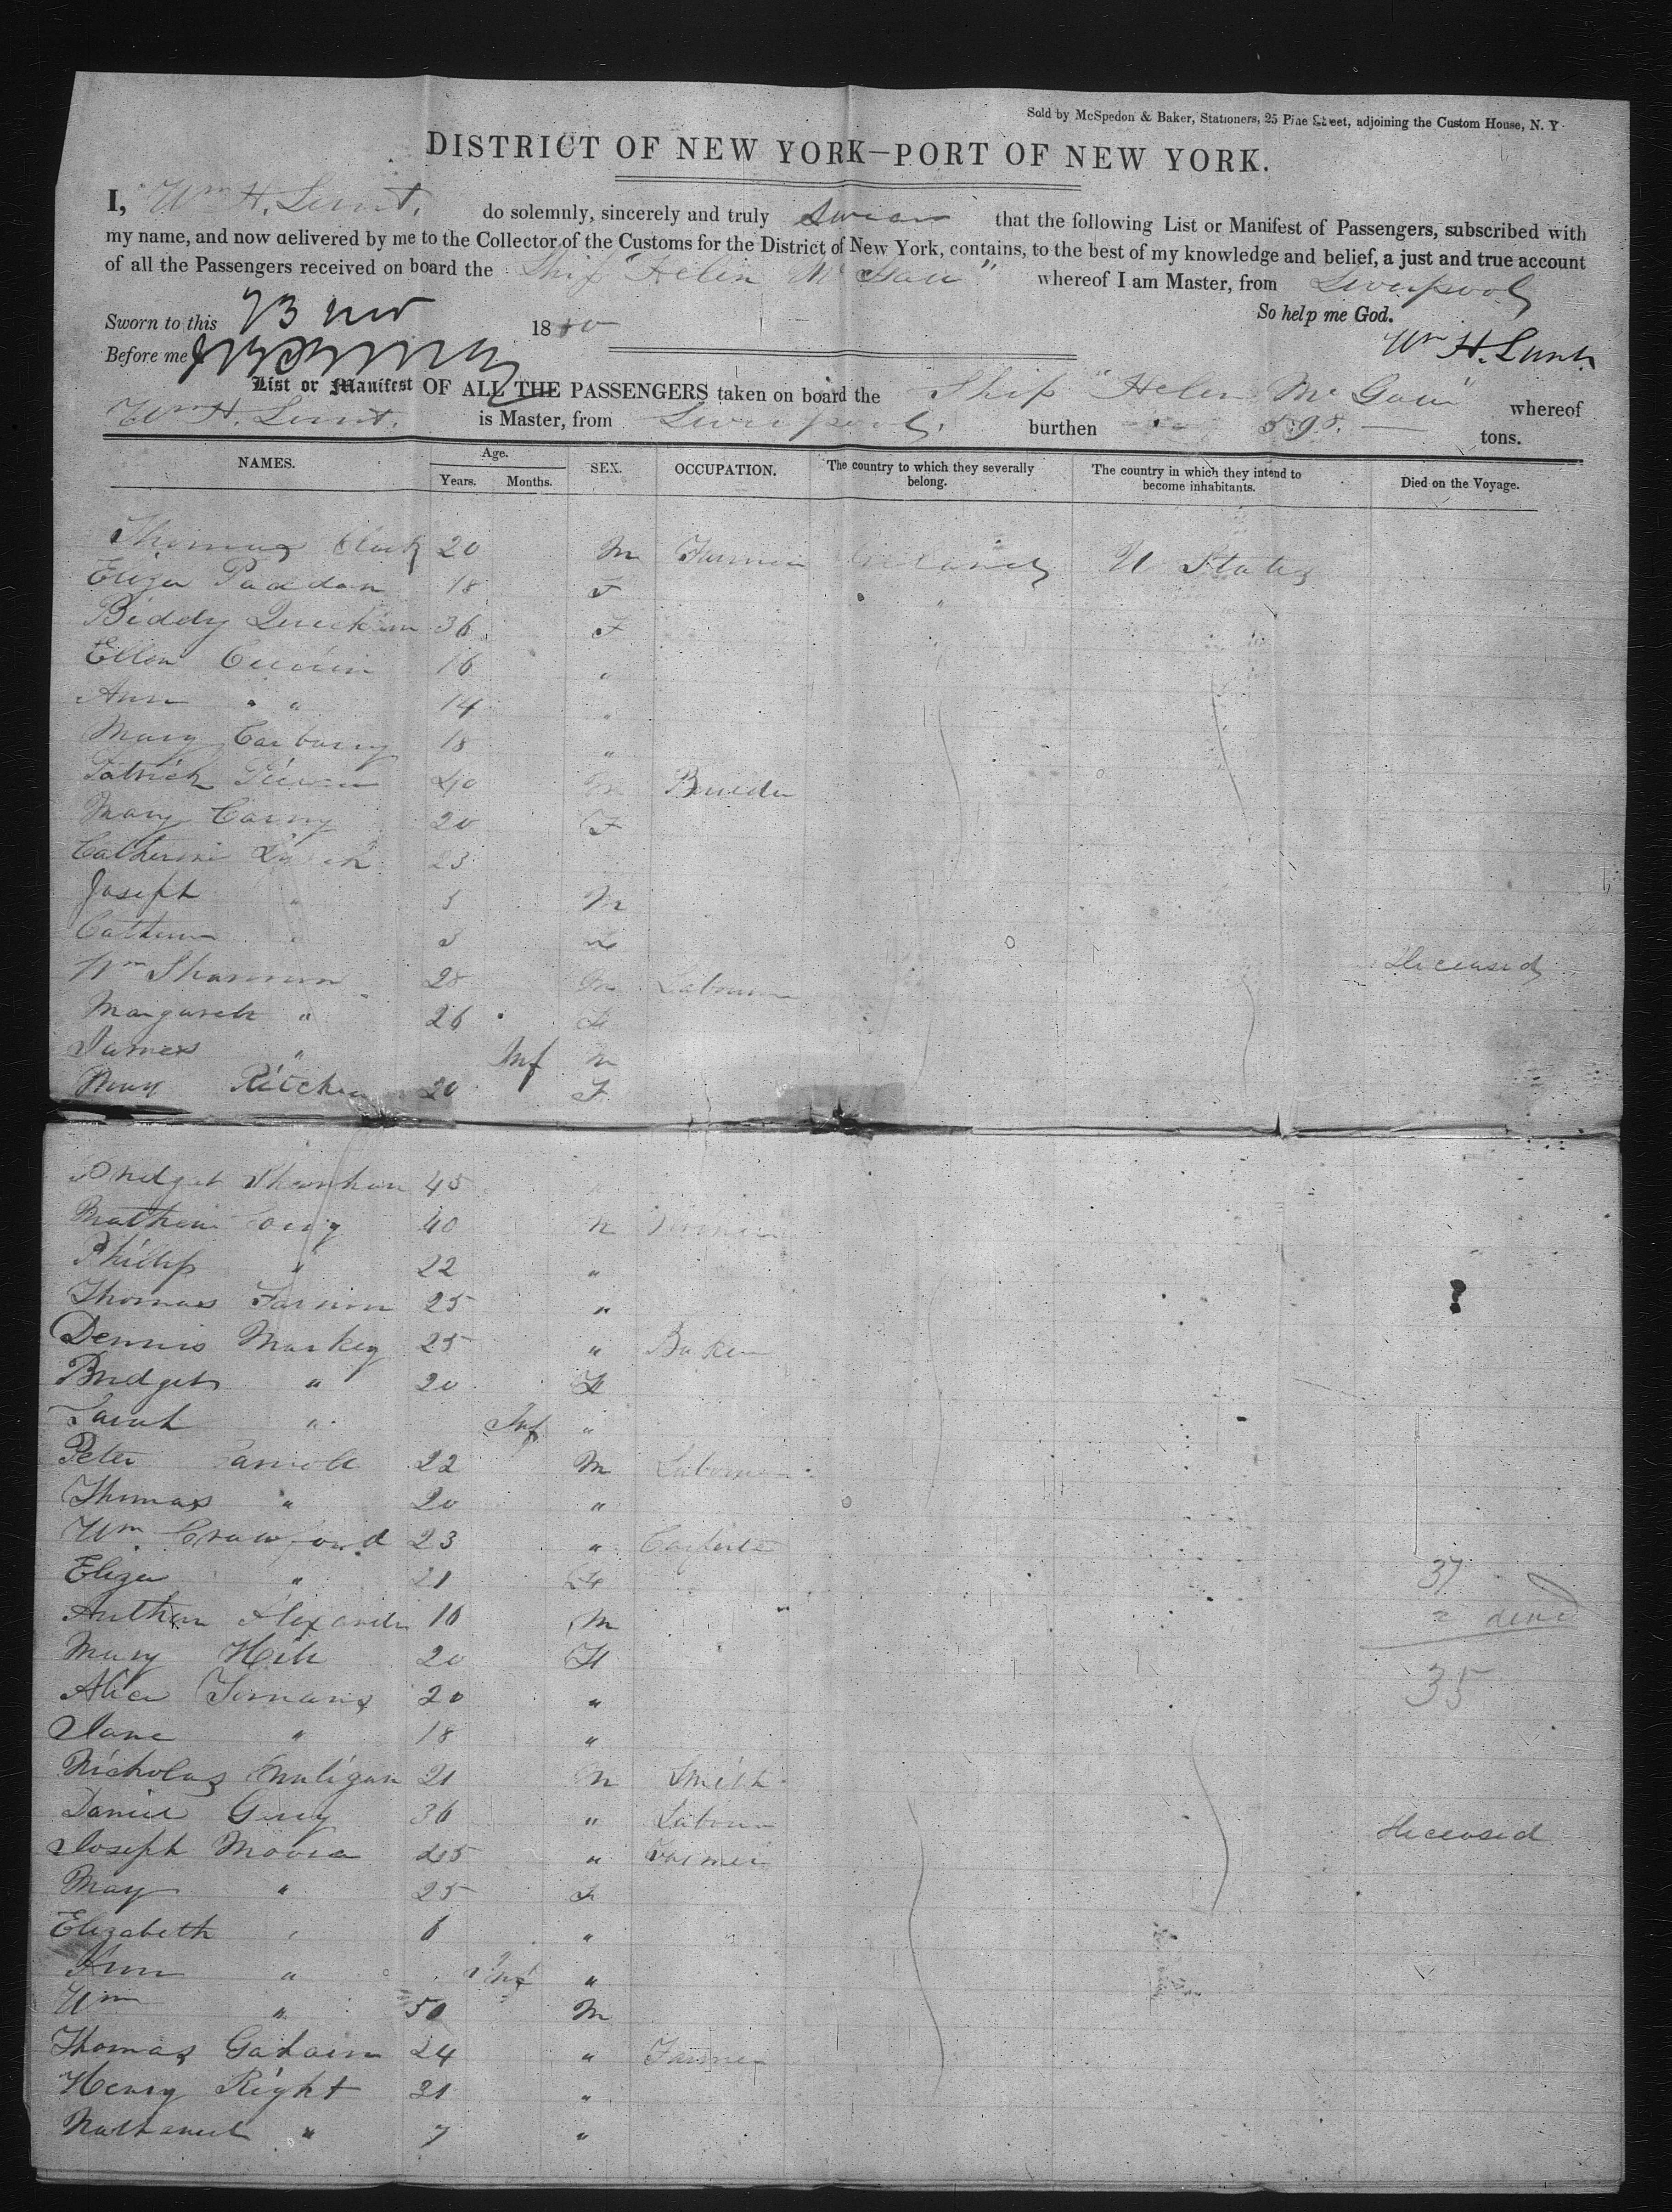 Sold by McSpedon & Baker, Stationers, 25 Pine Street, adjoining the Custom House, N. Y.
DISTRICT OF NEW YORK—PORT OF NEW YORK.
I, Wm H. Lunt. do solemnly, sincerely and truly Swear that the following List or Manifest of Passengers, subscribed with
my name, and now delivered by me to the Collector of the Customs for the District of New York, contains, to the best of my knowledge and belief, a just and true account
of all the Passengers received on board the Ship "Helen McGaw" whereof I am Master, from Liverpool
So help me God.
Sworn to this 23 Nov 18
Before me
Wm H. Lunt.
List or Manifest OF ALL THE PASSENGERS taken on board the Ship "Helen McGaw" whereof
Wm H. Lunt. is Master, from Liverpool. burthen 598. tons.
NAMES. Age. Years. Months. SEX. OCCUPATION. The country to which they severally belong. The country in which they intend to become inhabitants. Died on the Voyage.
Thomas Clark 20 M Farmer Ireland U States
Eliza Paddan 18 F
Biddy 36 F
Ellen 16 "
Ann " 14 "
Mary Carbury 18 "
Patrick 40 M
Mary Carny 20 F
Catherine Lynch 23
Joseph " 5 M
Catherine " 3 F
Wm Shannon 28 M Labourer Deceased
Margaret " 26 F
James " Inf M
Mary Ritchie 20 F
Bridget 45
40 M
Phillip " 22 "
Thomas Farnon 25 "
Dennis Markey 25 " Baker
Bridget " 20 F
Sarah " Inf "
Peter Carroll 22 M Labourer
Thomas " 20 "
Wm. Crawford 23 " Carpenter
Eliza " 21 F 37
Alexander 16 M 2 dead
Mary Hill 20 F
Alice 20 " 35
Jane " 18 "
Nicholas Muligan 21 M Smith
Daniel 36 " Labour Deceased
Joseph Moora 25 " Farmer
May " 25 F
Elizabeth " 6 "
Ann " Inf "
Wm " 50 M
Thomas 24 " Farmer
Henry Right 31 "
Nathaniel " 7 "